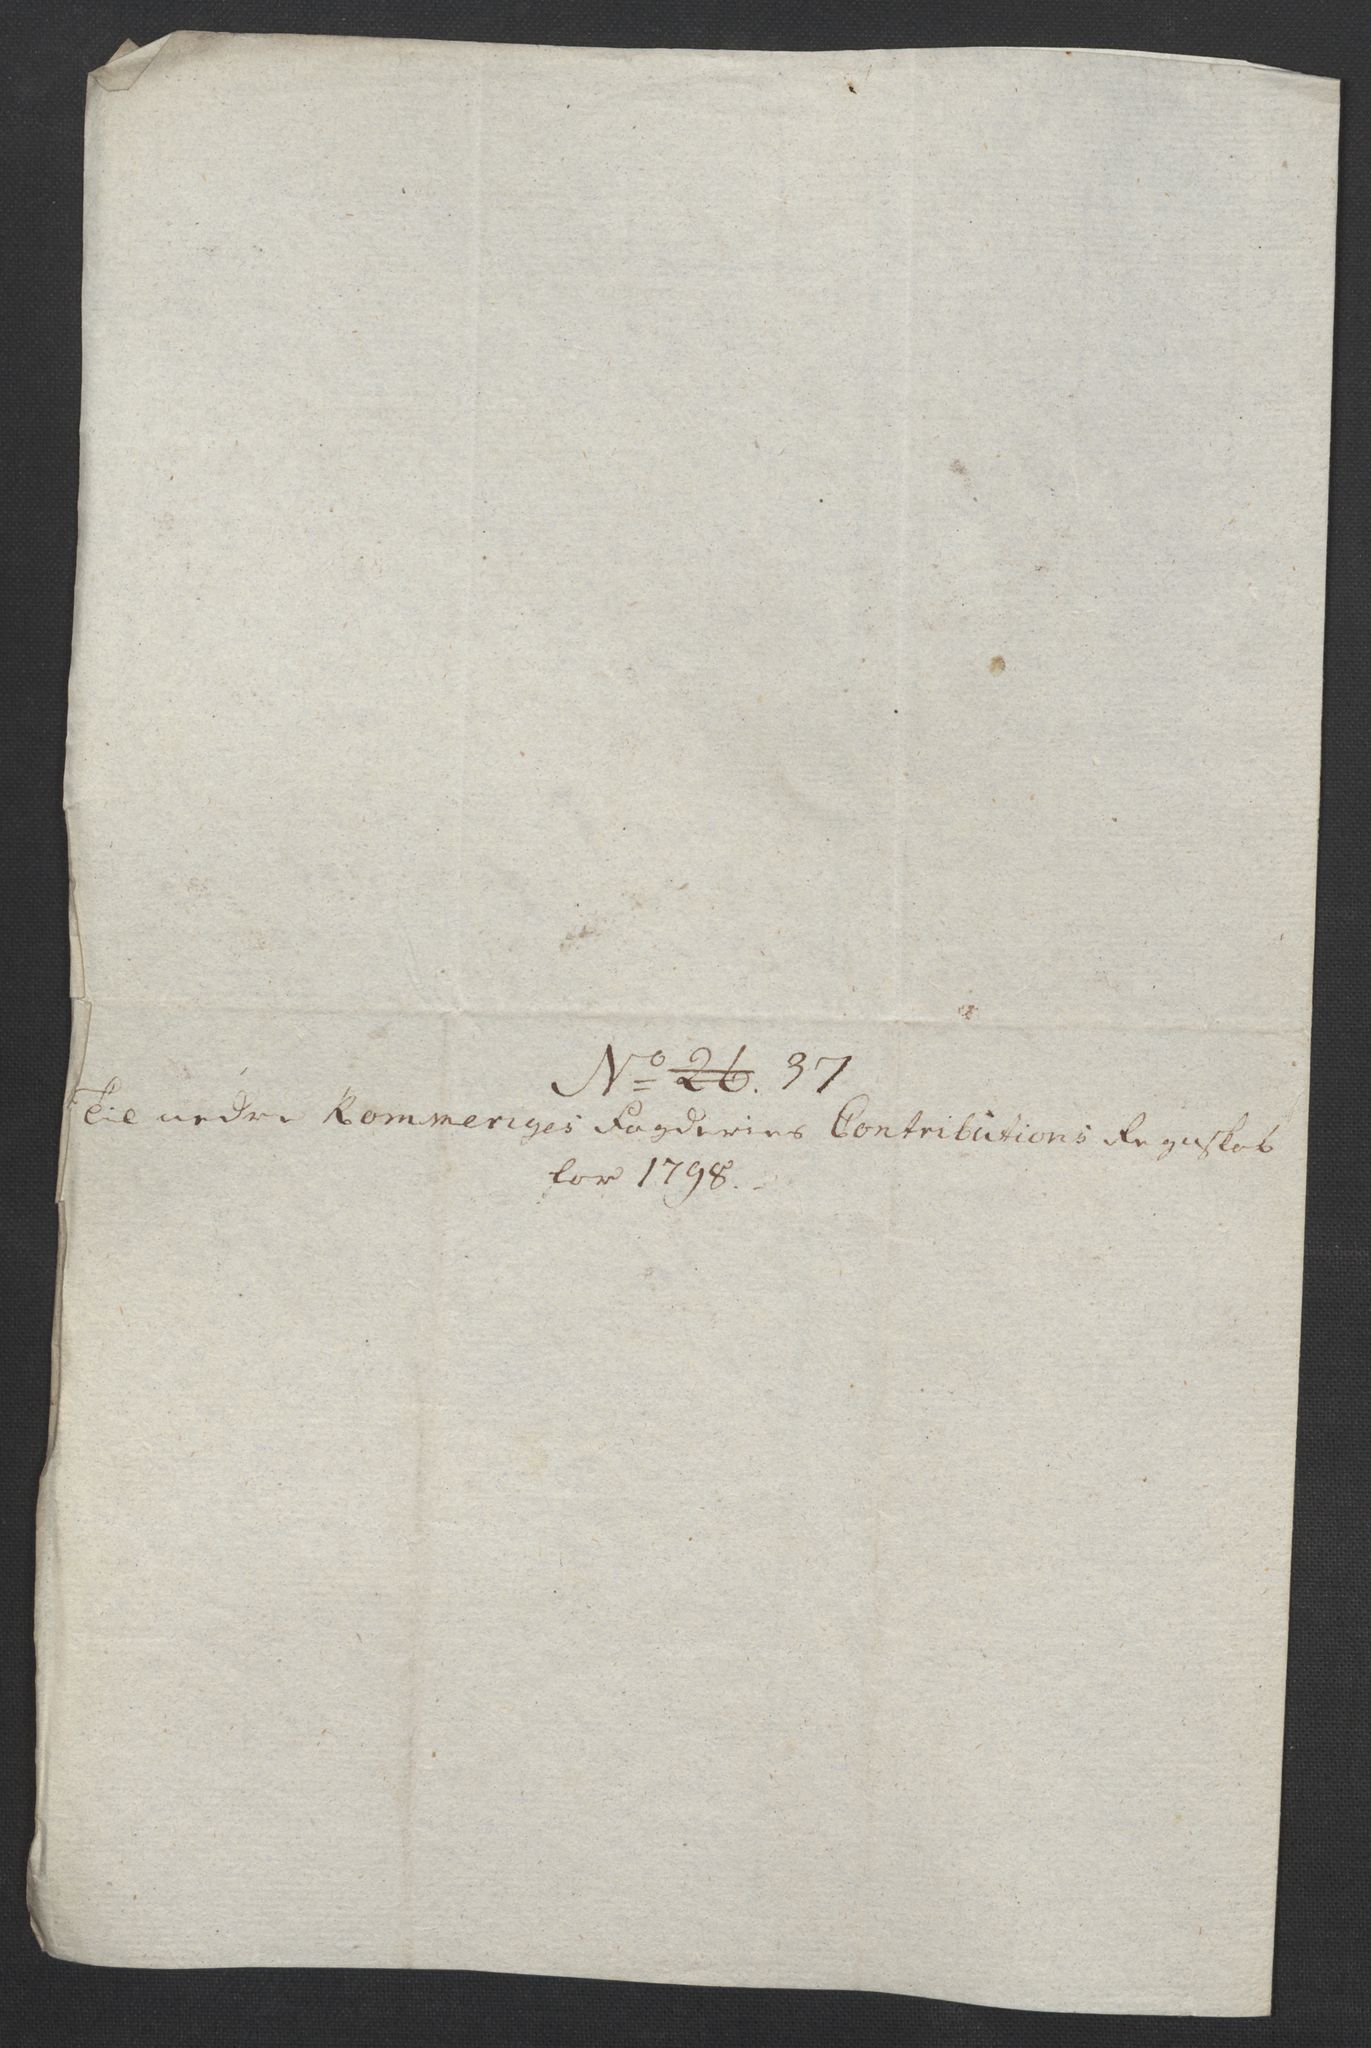 No 26. 37
Til nedre Rommeriges Fogderies Contributions Regnskab
for 1798.